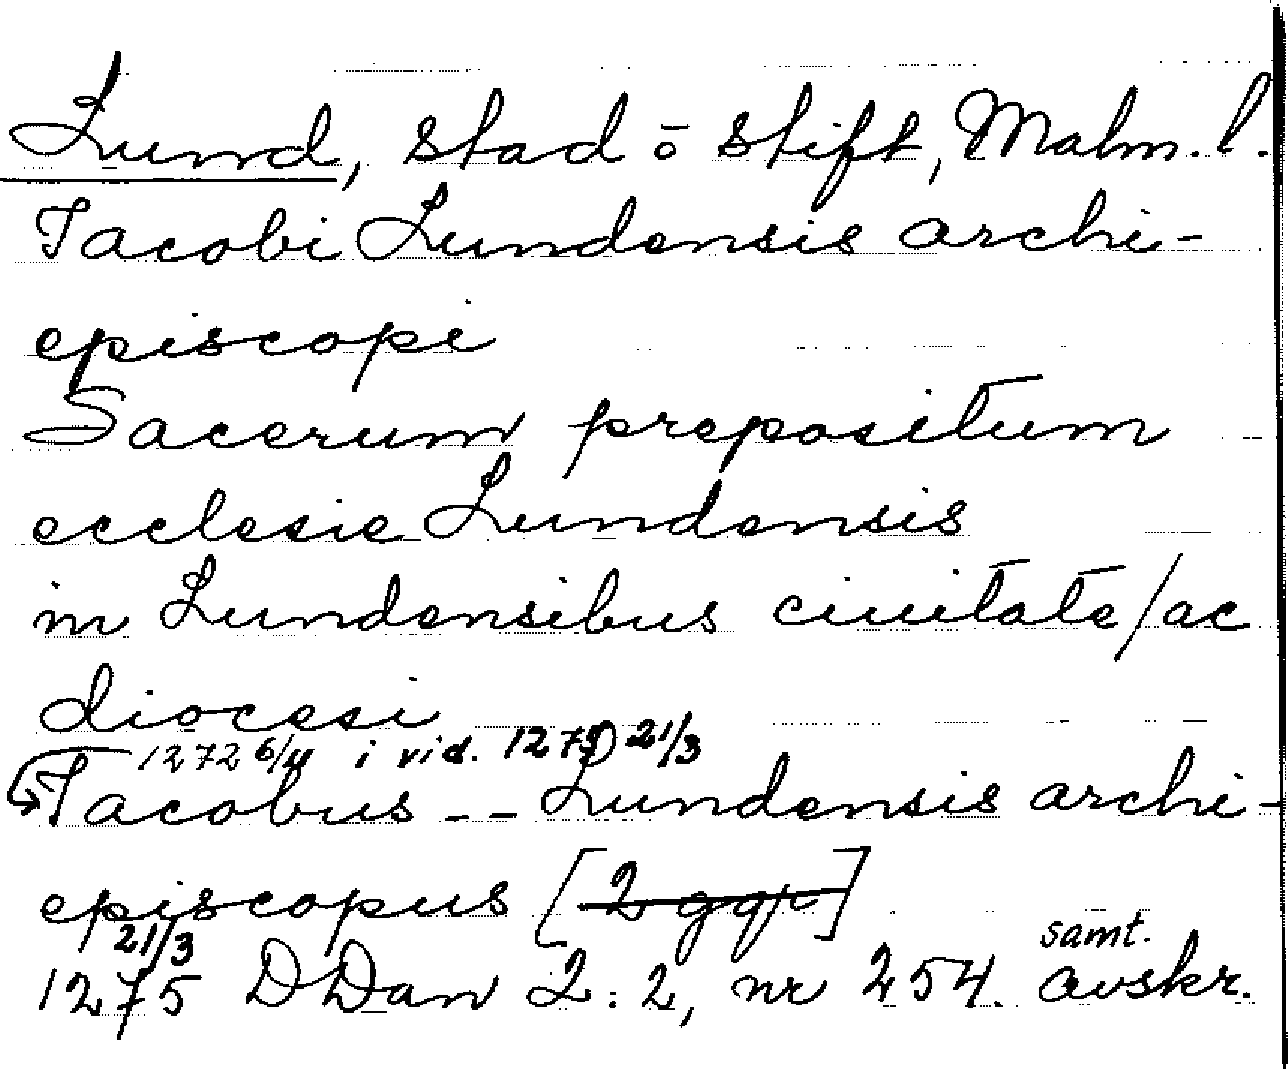 Lund, stad o stift, Malm. l.
Jacobi Lundensis archi-
episcopi
Sacerum prepositum
ecclesie Lundensis
in Lundensibus ciuitate/ac
diocesi
1272 6/4 i vid. 1275 21/3
Jacobus -- Lundensis archi-
episcopus [2 ggr]
21/3
samt.
1275 DDan 2:2, nr 254. avskr.